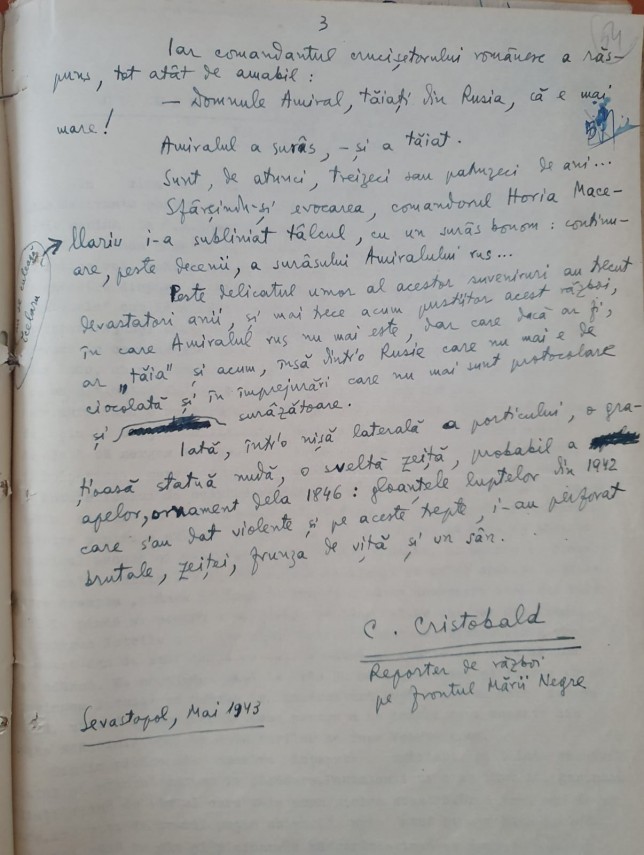 3
54
Iar comandantul crucișetorului românesc a răs-
puns, tot atât de amabil :
— Domnule Amiral, tăiați din Rusia, că e mai
mare !
Amiralul a surâs, – și a tăiat.
Sunt, de atunci, treizeci sau patruzeci de ani...
Sfârșindu-și evocarea, comandorul Horia Mace-
llariu i-a subliniat tâlcul, cu un surâs bonom : continu-
are, peste decenii, a surâsului Amiralului rus...
Peste delicatul umor al acestor suveniruri au trecut
devastatori anii, și mai trece acum pustiitor acest război,
în care Amiralul rus nu mai este, dar care dacă ar fi,
ar „tăia" și acum, însă dintr'o Rusie care nu mai e de
ciocolată și în împrejurări care nu mai sunt protocolare
și surâzătoare.
Iată, într'o nișă laterală a porticului, o gra-
țioasă statuă nudă, o sveltă zeiță, probabil a
apelor, ornament dela 1846 : gloanțele luptelor din 1942
care s'au dat violente și pe aceste trepte, i-au perforat
brutale, zeiței, frunza de viță și un sân.
C. Cristobald
Reporter de război
pe frontul Mării Negre
Sevastopol, Mai 1943